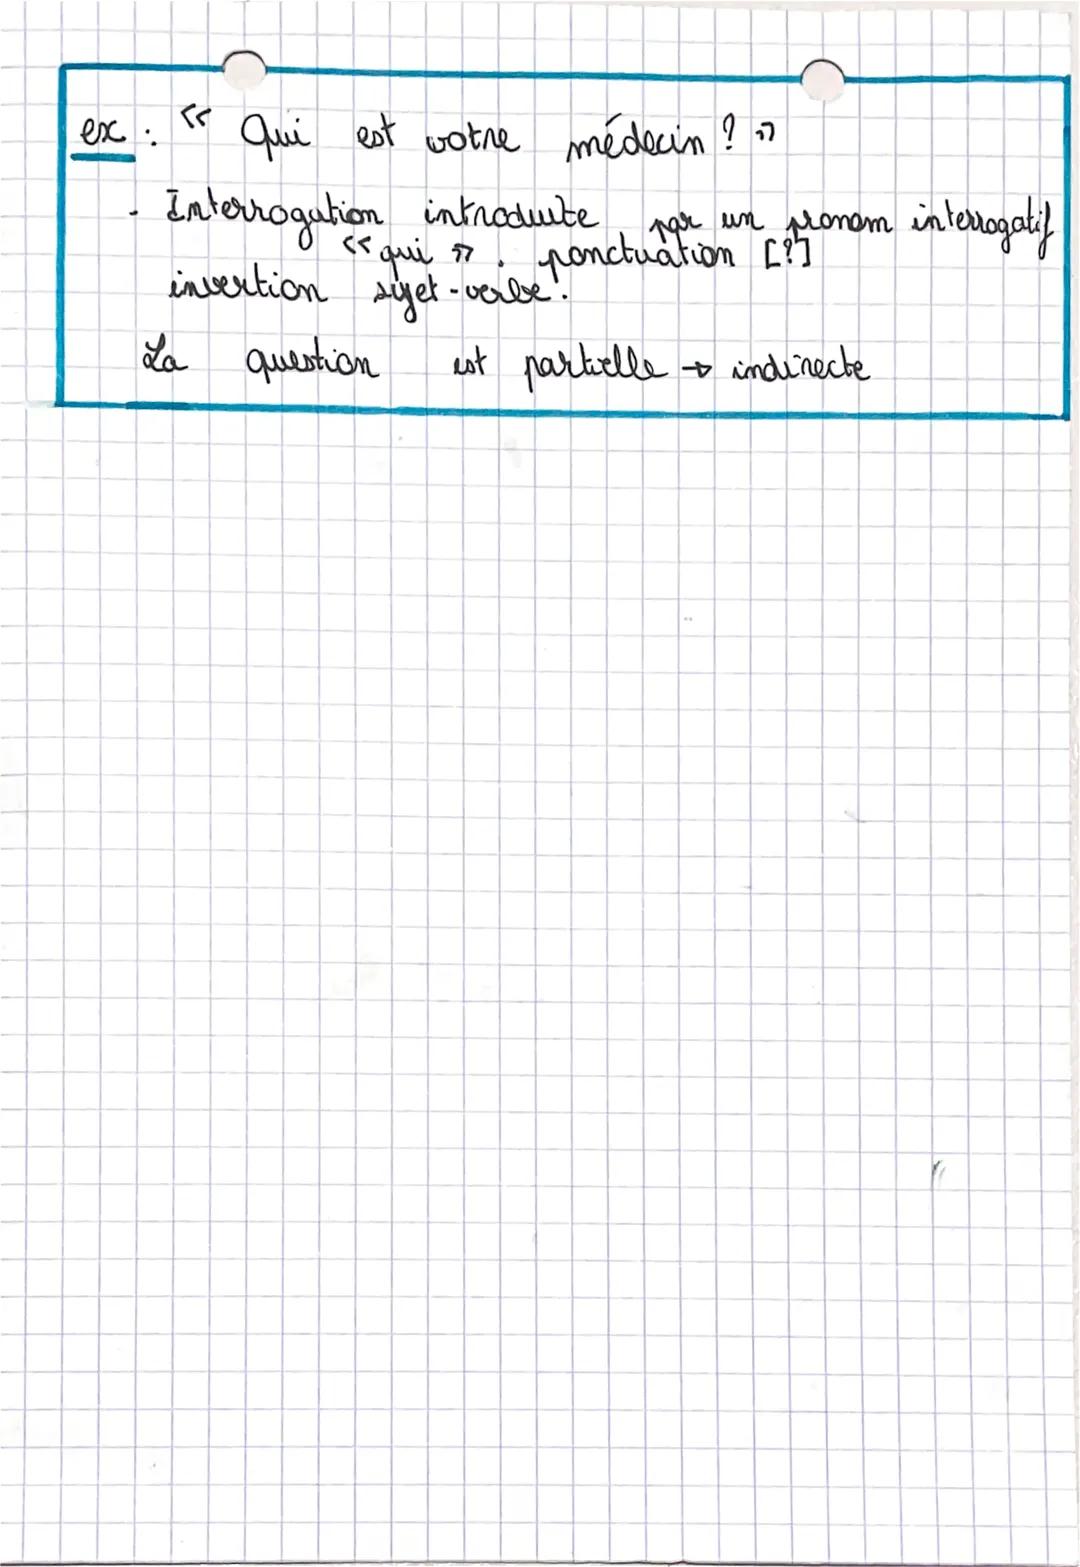 ex : « Qui est votre médecin ? »
- Interrogation introduite par un pronom interrogatif
« qui ». ponctuation [?]
invertion sujet-verbe.
La question est partielle → indirecte